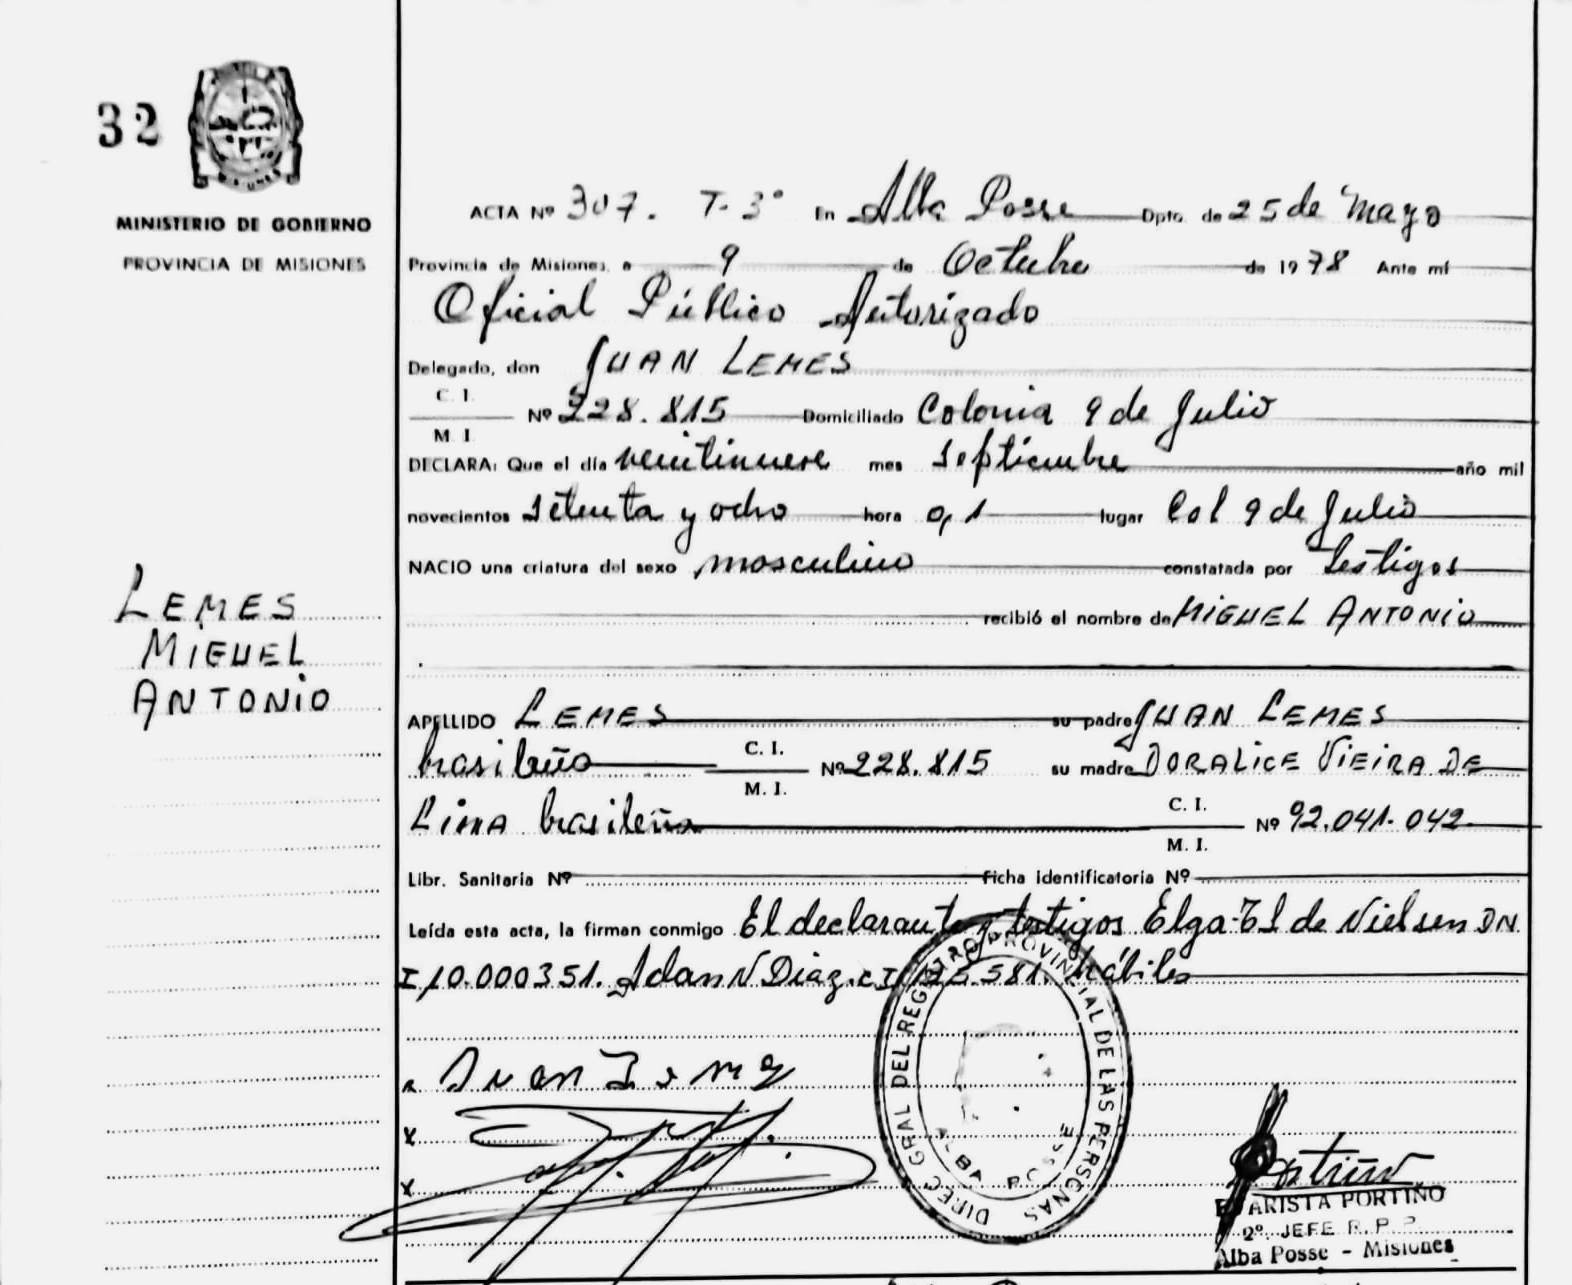 32
MINISTERIO DE GOBIERNO
PROVINCIA DE MISIONES
LEMES
MIGUEL
ANTONIO
ACTA Nº 307. T-3º En Alba Posse Dpto. de 25 de Mayo
Provincia de Misiones, a 9 de Octubre de 1978 Ante mí
Oficial Público Autorizado
Delegado, don JUAN LEMES
C. I.
M. I.
Nº 228.815 Domiciliado Colonia 9 de Julio
DECLARA: Que el día veintinueve mes septiembre año mil
novecientos setenta y ocho hora 0,1 lugar Col 9 de Julio
NACIO una criatura del sexo masculino constatada por testigos
recibió el nombre de MIGUEL ANTONIO
APELLIDO LEMES su padre JUAN LEMES
brasileño C. I. M. I. Nº 228.815 su madre DORALICE VIEIRA DE
LIMA brasileña C. I. M. I. Nº 92.041.042
Libr. Sanitaria Nº Ficha identificatoria Nº
Leída esta acta, la firman conmigo El declarante y testigos Elga de Nielsen DN
I 10.000351. Adan N Diaz. CI 581. hábiles
DIREC GRAL DEL REGISTRO PROVINCIAL DE LAS PERSONAS
ALBA POSSE
Juan
ARISTA PORTIÑO
2º. JEFE R. P. P.
Alba Posse - Misiones